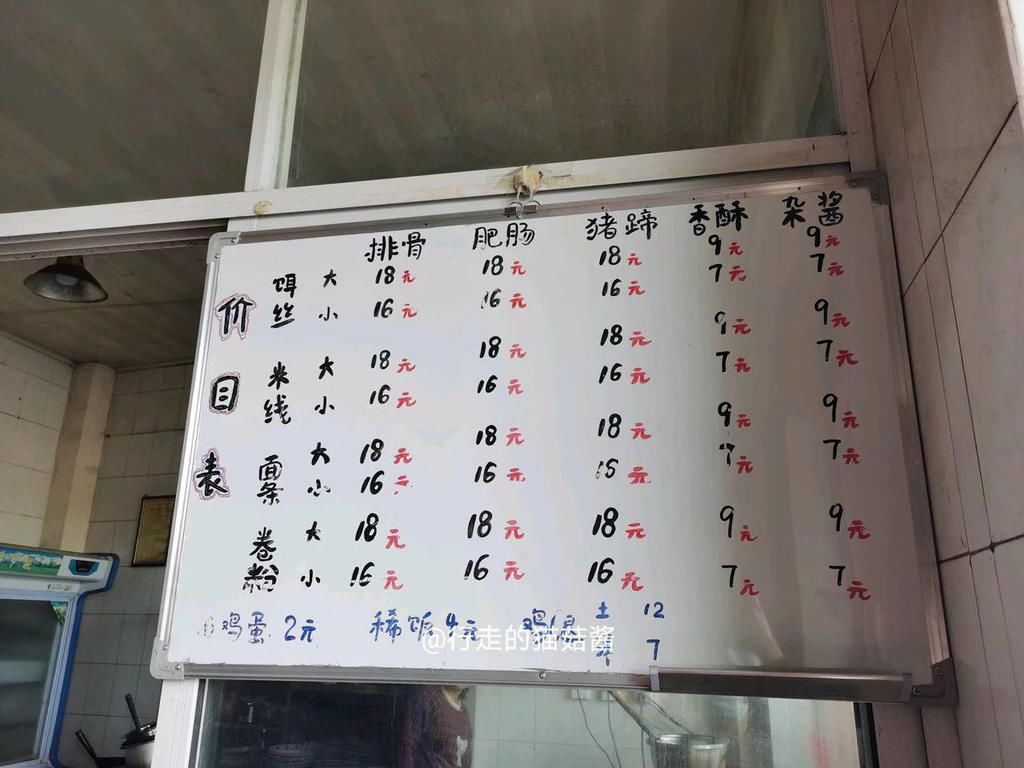 价目表
排骨 肥肠 猪蹄 香酥 杂酱
饵丝 大 18元 18元 18元 9元 9元
小 16元 16元 16元 7元 7元
米线 大 18元 18元 18元 9元 9元
小 16元 16元 16元 7元 7元
面条 大 18元 18元 18元 9元 9元
小 16元 16元 16元 7元 7元
卷粉 大 18元 18元 18元 9元 9元
小 16元 16元 16元 7元 7元
鸡蛋 2元 稀饭 4元 土 12
7
@行走的猫菇酱